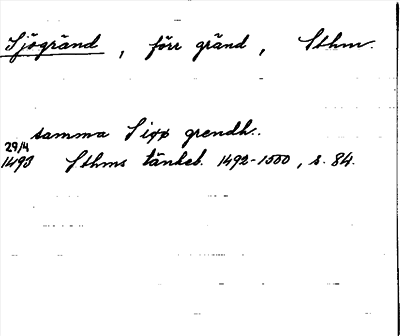 Sjögränd, förr gränd, Sthm.
samma Siøø grendh.
29/4
1493 Sthms tänkeb. 1492-1500, s. 84.